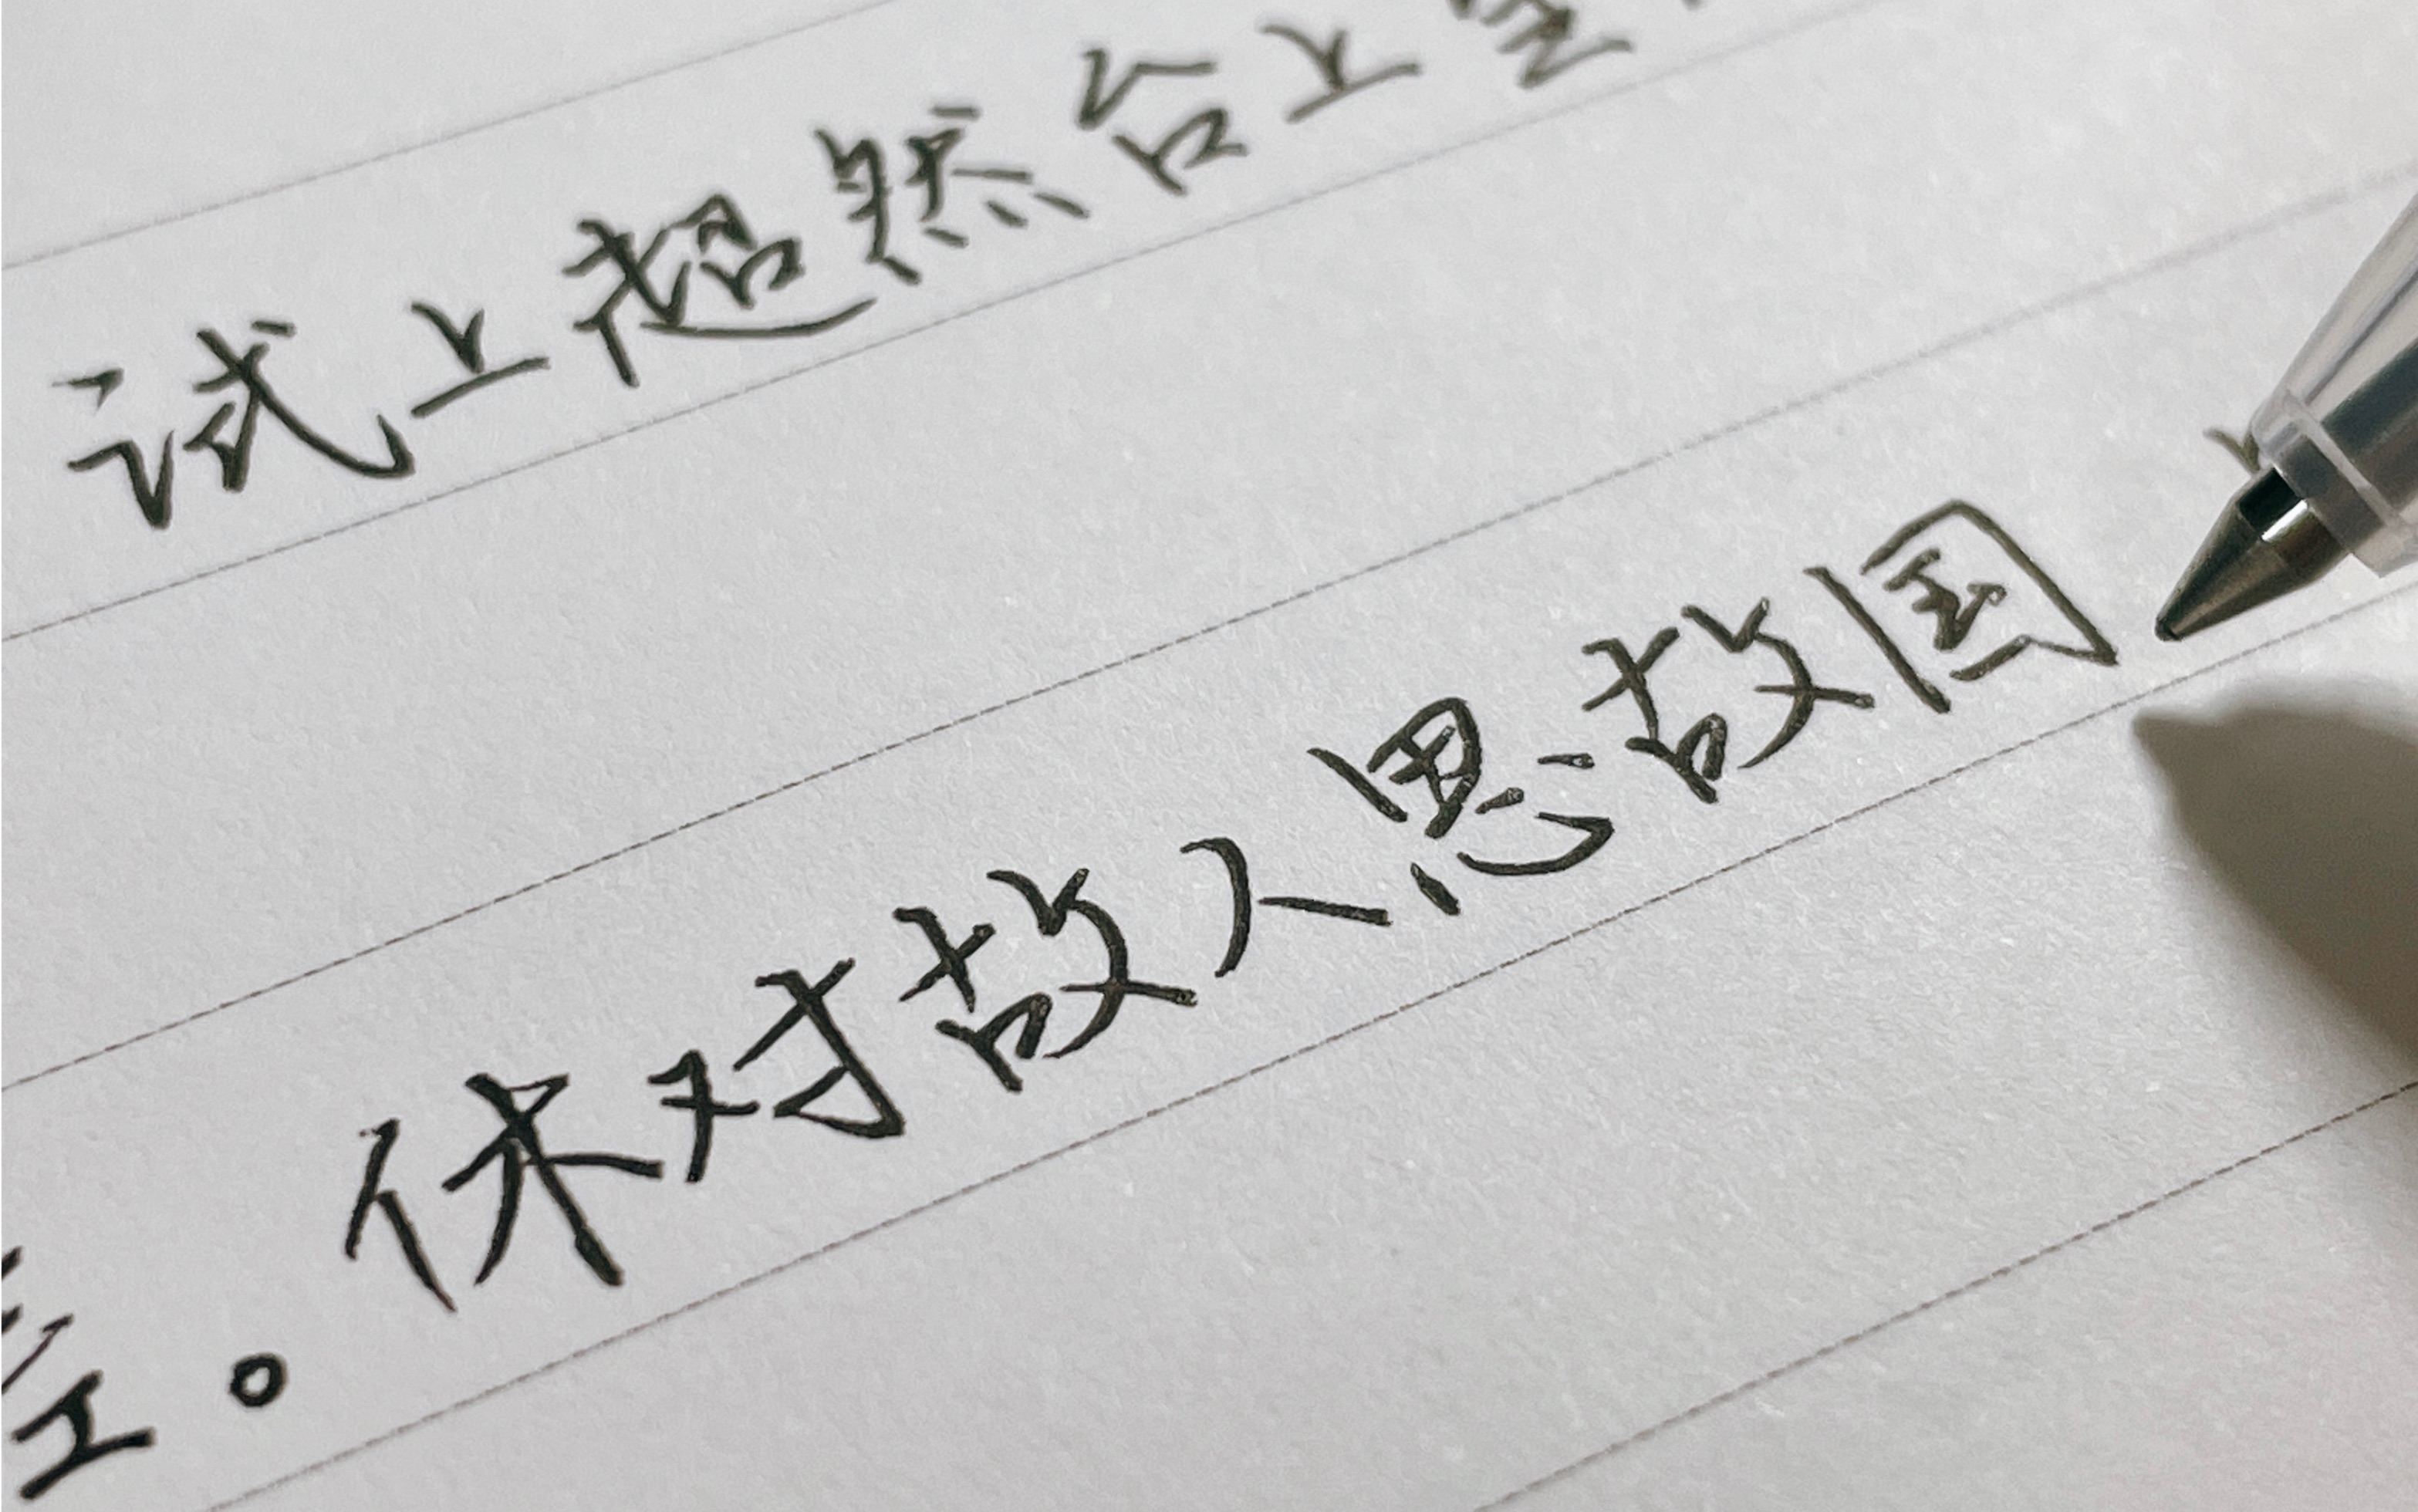 试上超然台上
。休对故人思故国